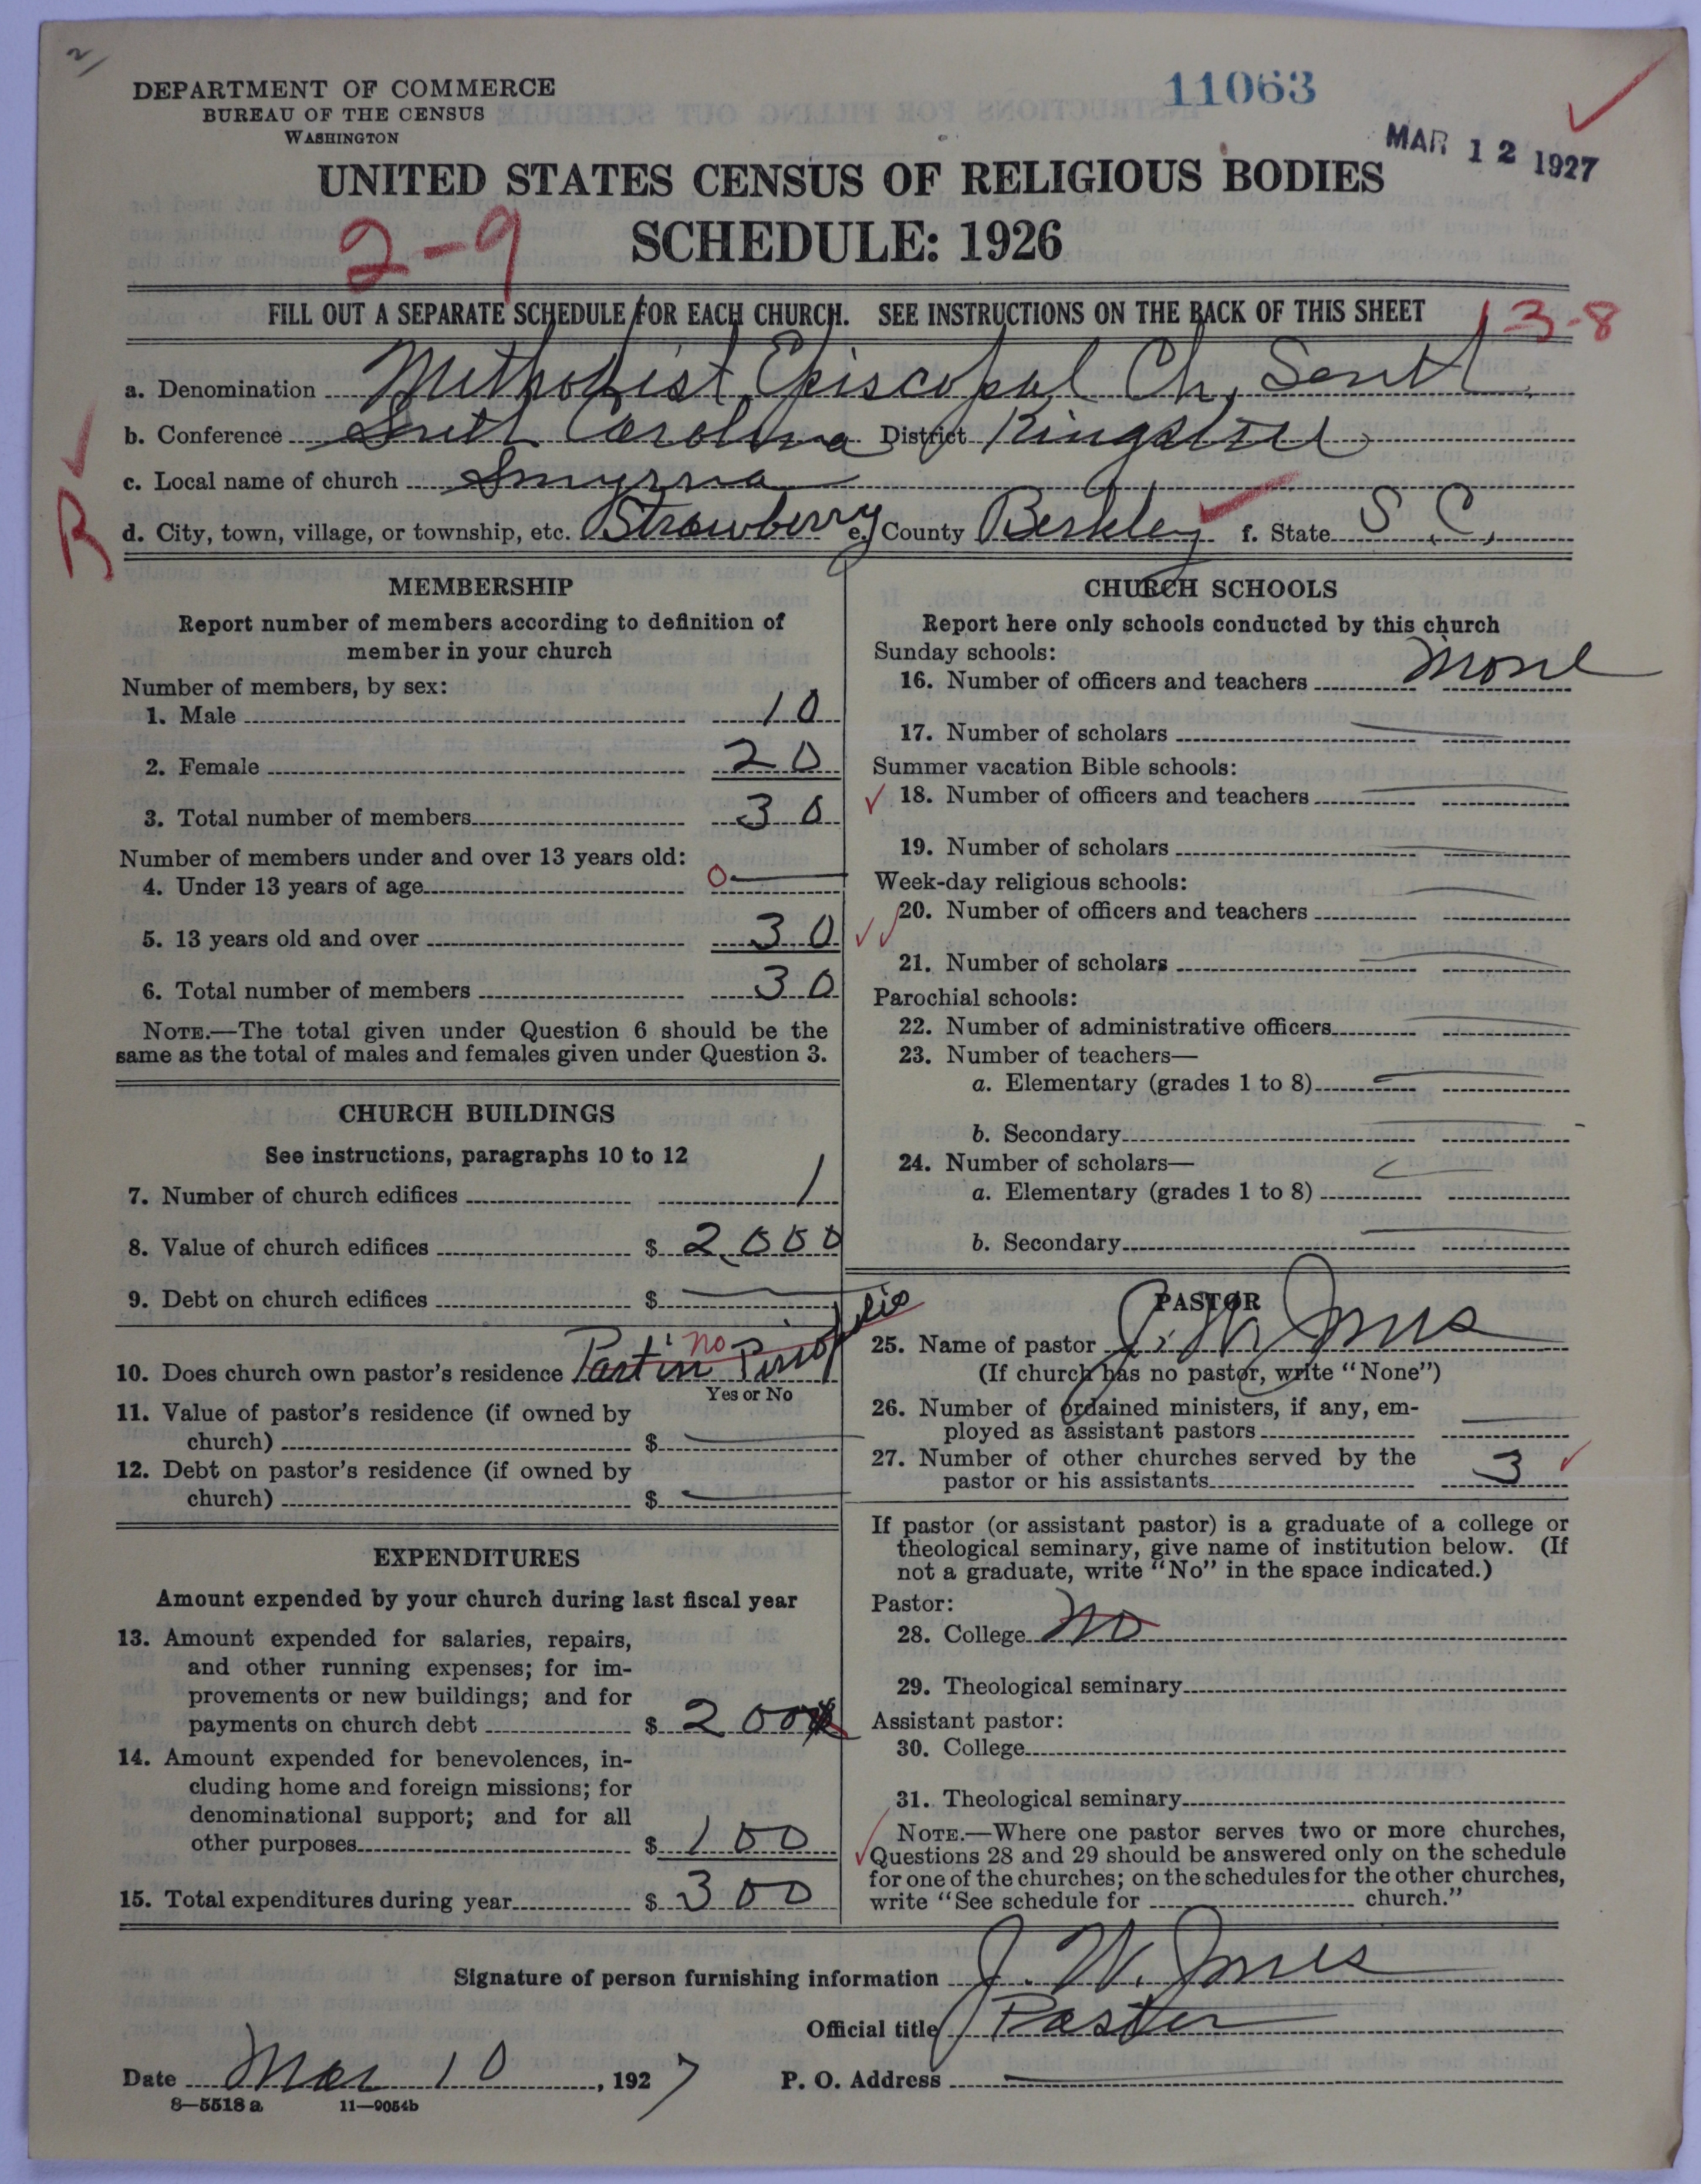 2
DEPARTMENT OF COMMERCE
BUREAU OF THE CENSUS
WASHINGTON
11063
MAR 12 1927
UNITED STATES CENSUS OF RELIGIOUS BODIES
SCHEDULE: 1926
2-9
FILL OUT A SEPARATE SCHEDULE FOR EACH CHURCH. SEE INSTRUCTIONS ON THE BACK OF THIS SHEET
13-8
a. Denomination Methodist Episcopal Ch, South
b. Conference South Carolina District Kingstree
c. Local name of church Smyrna
R
d. City, town, village, or township, etc. Strawberry e. County Berkley f. State S. C.
MEMBERSHIP
Report number of members according to definition of
member in your church
Number of members, by sex:
1. Male 10
2. Female 20
3. Total number of members 30
Number of members under and over 13 years old:
4. Under 13 years of age 0
5. 13 years old and over 30
6. Total number of members 30
NOTE.—The total given under Question 6 should be the
same as the total of males and females given under Question 3.
CHURCH BUILDINGS
See instructions, paragraphs 10 to 12
7. Number of church edifices 1
8. Value of church edifices $ 2,000
9. Debt on church edifices $
10. Does church own pastor's residence Part in no
Yes or No
11. Value of pastor's residence (if owned by
church) $
12. Debt on pastor's residence (if owned by
church) $
EXPENDITURES
Amount expended by your church during last fiscal year
13. Amount expended for salaries, repairs,
and other running expenses; for im-
provements or new buildings; and for
payments on church debt $ 200
14. Amount expended for benevolences, in-
cluding home and foreign missions; for
denominational support; and for all
other purposes $ 100
15. Total expenditures during year $ 300
CHURCH SCHOOLS
Report here only schools conducted by this church
Sunday schools:
16. Number of officers and teachers None
17. Number of scholars
Summer vacation Bible schools:
18. Number of officers and teachers
19. Number of scholars
Week-day religious schools:
20. Number of officers and teachers
21. Number of scholars
Parochial schools:
22. Number of administrative officers
23. Number of teachers—
a. Elementary (grades 1 to 8)
b. Secondary
24. Number of scholars—
a. Elementary (grades 1 to 8)
b. Secondary
PASTOR
25. Name of pastor J. W. Jones
(If church has no pastor, write "None")
26. Number of ordained ministers, if any, em-
ployed as assistant pastors
27. Number of other churches served by the
pastor or his assistants 3
If pastor (or assistant pastor) is a graduate of a college or
theological seminary, give name of institution below. (If
not a graduate, write "No" in the space indicated.)
Pastor:
28. College No
29. Theological seminary
Assistant pastor:
30. College
31. Theological seminary
NOTE.—Where one pastor serves two or more churches,
Questions 28 and 29 should be answered only on the schedule
for one of the churches; on the schedules for the other churches,
write "See schedule for church."
Signature of person furnishing information J. W. Jones
Official title Pastor
Date Mar 10, 1927 P. O. Address
8—5518 a 11—9054b